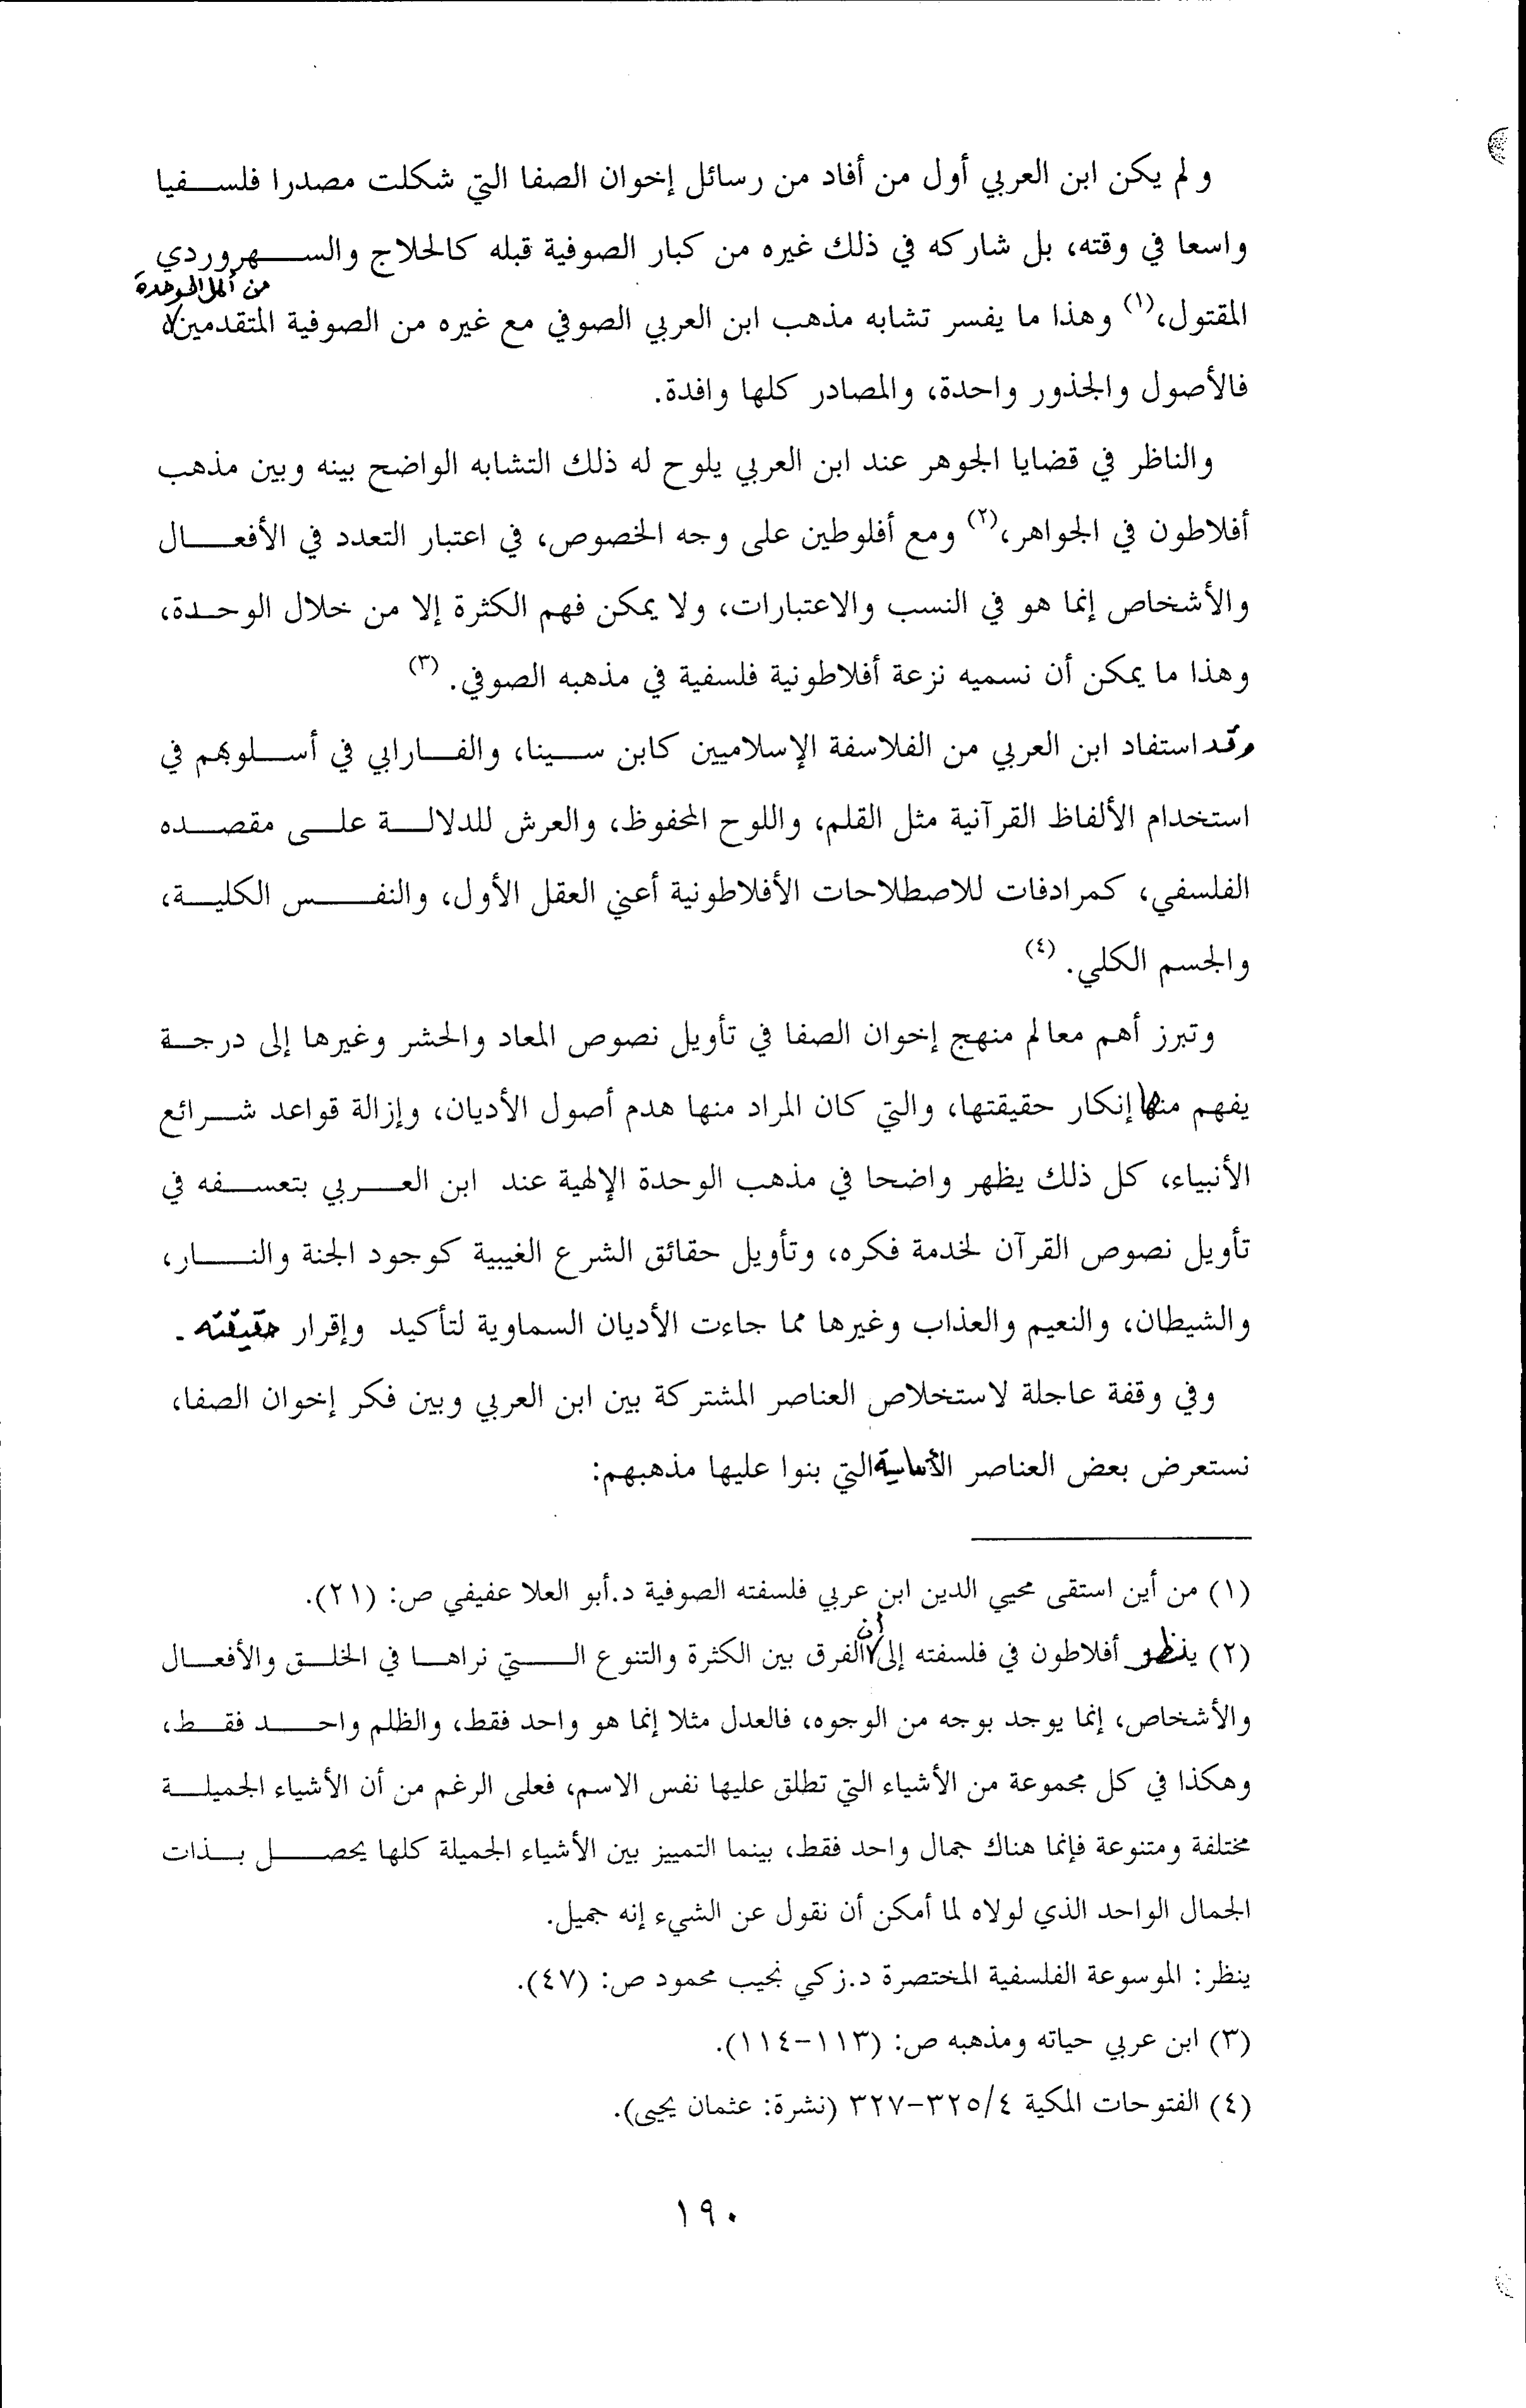 ولم يكن ابن العربي أول من أفاد من رسائل إخوان الصفا التي شكلت مصدرا فلسفيا
واسعا في وقته، بل شاركه في ذلك غيره من كبار الصوفية قبله كالحلاج والسهروردي
من أهل الوحدة
المقتول،(١) وهذا ما يفسر تشابه مذهب ابن العربي الصوفي مع غيره من الصوفية المتقدمين
فالأصول والجذور واحدة، والمصادر كلها وافدة.
والناظر في قضايا الجوهر عند ابن العربي يلوح له ذلك التشابه الواضح بينه وبين مذهب
أفلاطون في الجواهر،(٢) ومع أفلوطين على وجه الخصوص، في اعتبار التعدد في الأفعال
والأشخاص إنما هو في النسب والاعتبارات، ولا يمكن فهم الكثرة إلا من خلال الوحدة،
وهذا ما يمكن أن نسميه نزعة أفلاطونية فلسفية في مذهبه الصوفي. (٣)
وقد استفاد ابن العربي من الفلاسفة الإسلاميين كابن سينا، والفارابي في أسلوبهم في
استخدام الألفاظ القرآنية مثل القلم، واللوح المحفوظ، والعرش للدلالة على مقصده
الفلسفي، كمرادفات للاصطلاحات الأفلاطونية أعني العقل الأول، والنفس الكلية،
والجسم الكلي. (٤)
وتبرز أهم معالم منهج إخوان الصفا في تأويل نصوص المعاد والحشر وغيرها إلى درجة
يفهم منها إنكار حقيقتها، والتي كان المراد منها هدم أصول الأديان، وإزالة قواعد شرائع
الأنبياء، كل ذلك يظهر واضحا في مذهب الوحدة الإلهية عند ابن العربي بتعسفه في
تأويل نصوص القرآن لخدمة فكره، وتأويل حقائق الشرع الغيبية كوجود الجنة والنار،
والشيطان، والنعيم والعذاب وغيرها مما جاءت الأديان السماوية لتأكيد وإقرار حقيقته.
وفي وقفة عاجلة لاستخلاص العناصر المشتركة بين ابن العربي وبين فكر إخوان الصفا،
نستعرض بعض العناصر الأساسية التي بنوا عليها مذهبهم:
(١) من أين استقى محيي الدين ابن عربي فلسفته الصوفية د.أبو العلا عفيفي ص: (٢١).
(٢) ينظر أفلاطون في فلسفته إلى أن الفرق بين الكثرة والتنوع التي نراها في الخلق والأفعال
والأشخاص، إنما يوجد بوجه من الوجوه، فالعدل مثلا إنما هو واحد فقط، والظلم واحد فقط،
وهكذا في كل مجموعة من الأشياء التي تطلق عليها نفس الاسم، فعلى الرغم من أن الأشياء الجميلة
مختلفة ومتنوعة فإنما هناك جمال واحد فقط، بينما التمييز بين الأشياء الجميلة كلها يحصل بذات
الجمال الواحد الذي لولاه لما أمكن أن نقول عن الشيء إنه جميل.
ينظر: الموسوعة الفلسفية المختصرة د.زكي نجيب محمود ص: (٤٧).
(٣) ابن عربي حياته ومذهبه ص: (١١٣-١١٤).
(٤) الفتوحات المكية ٣٢٥/٤-٣٢٧ (نشرة: عثمان يحيى).
١٩٠